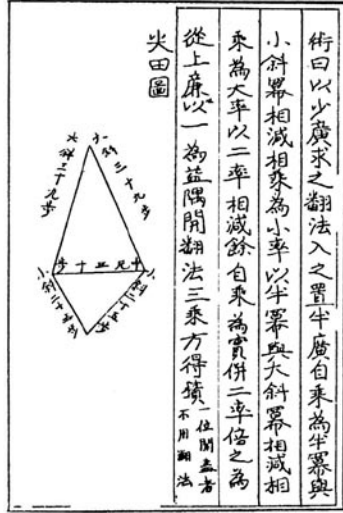 術曰以少廣求之翻法入之置半廣自乘為半冪與
小斜冪相減相乘為小率以半冪與大斜冪相減相
乘為大率以二率相減餘自乘為實併二率倍之為
從上廉以一為益隅開翻法三乘方得積一位開盡者不用翻法
尖田圖
大斜三十九步
小斜三十九步
中廣三十步
小斜二十五步
小斜二十五步